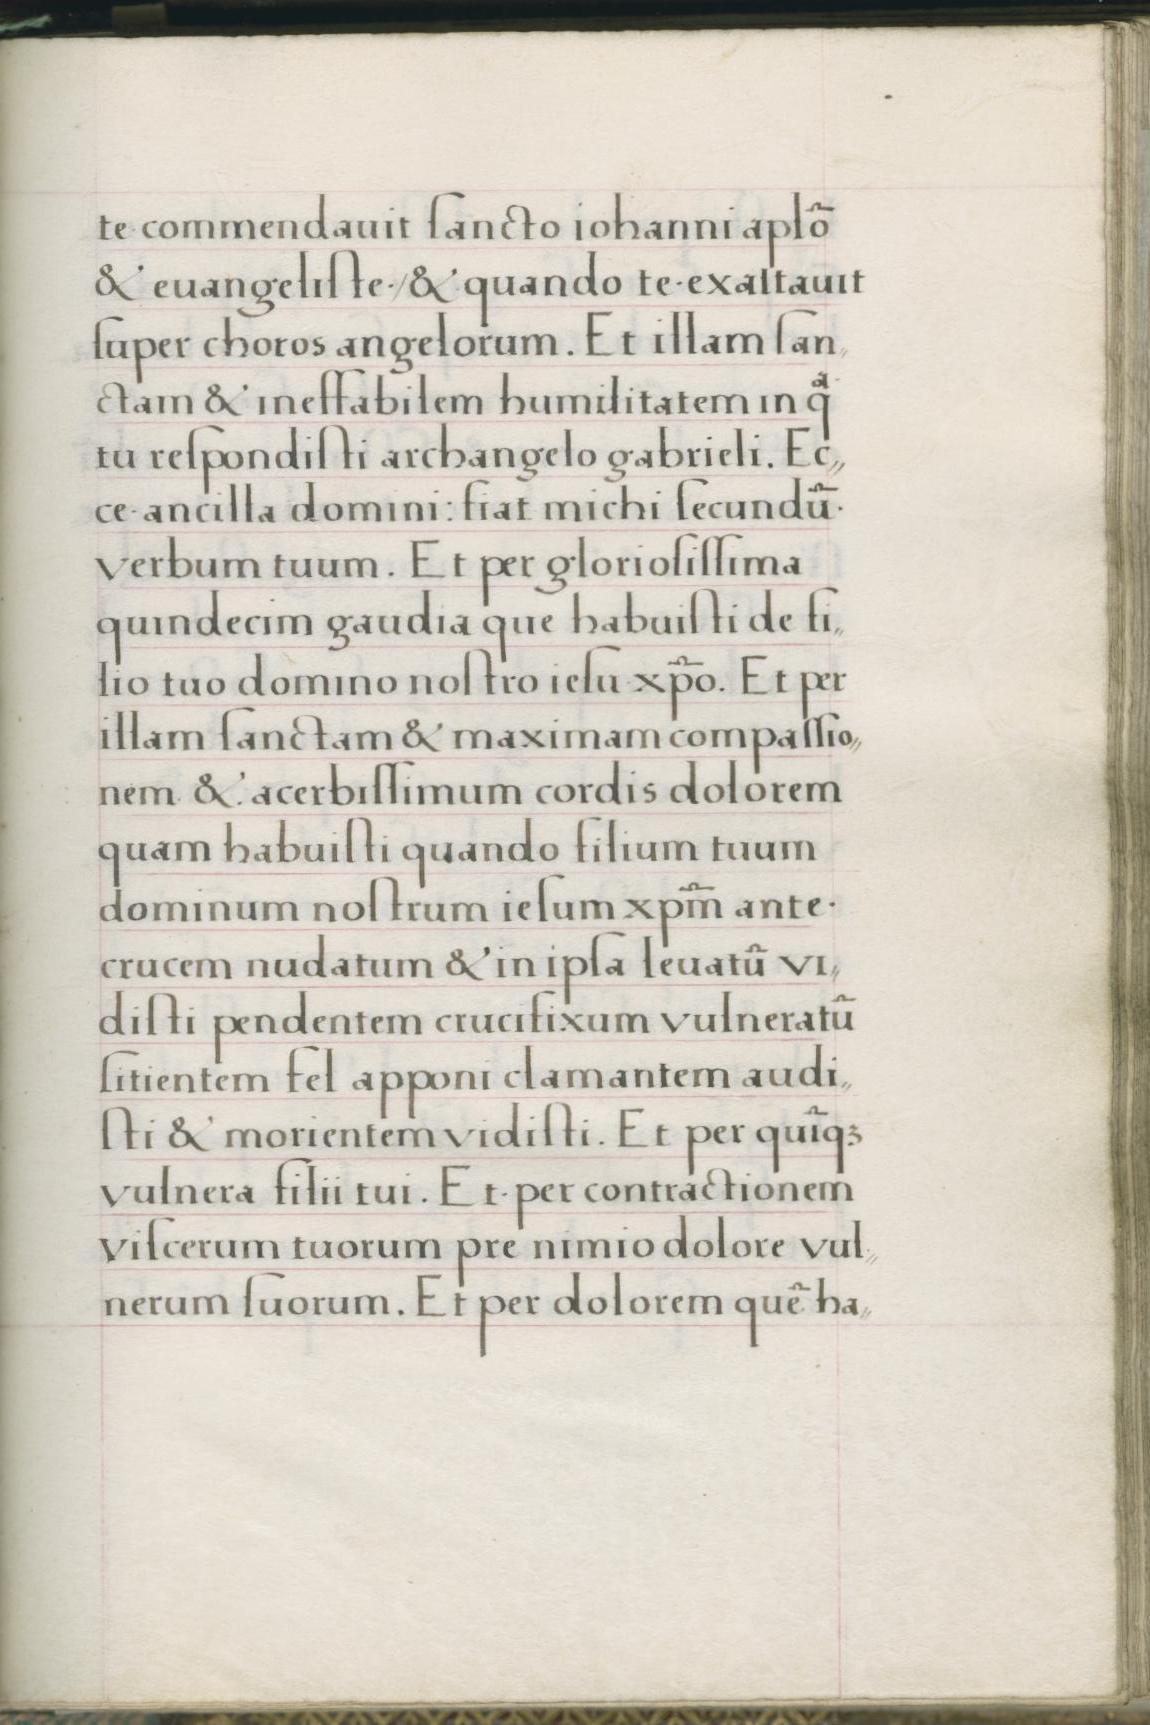 te commendauit ſancto iohanni aplõ
& euangeliſte·/& quando te·exaltauit
ſuper choros angelorum. Et illam ſan„
ctam & ineffabilem humilitatem in qͣ
tu reſpondiſti archangelo gabrieli. Ec„
ce·ancilla domini: fiat michi ſecundũ·
verbum tuum. Et per glorioſiſſima
quindecim gaudia que habuiſti de fi„
lio tuo domino noſtro ieſu xp̃o. Et per
illam ſanctam & maximam compaſſio„
nem & acerbiſſimum cordis dolorem
quam habuiſti quando filium tuum
dominum noſtrum ieſum xpm̃ ante·
crucem nudatum & in ipſa leuatũ vi„
diſti pendentem crucifixum vulneratũ
ſitientem fel apponi clamantem audi„
ſti & morientem vidiſti. Et per quĩqꝫ
vulnera filii tui. Et·per contractionem
viſcerum tuorum pre nimio dolore vul„
nerum ſuorum. Et per dolorem quẽ ha„